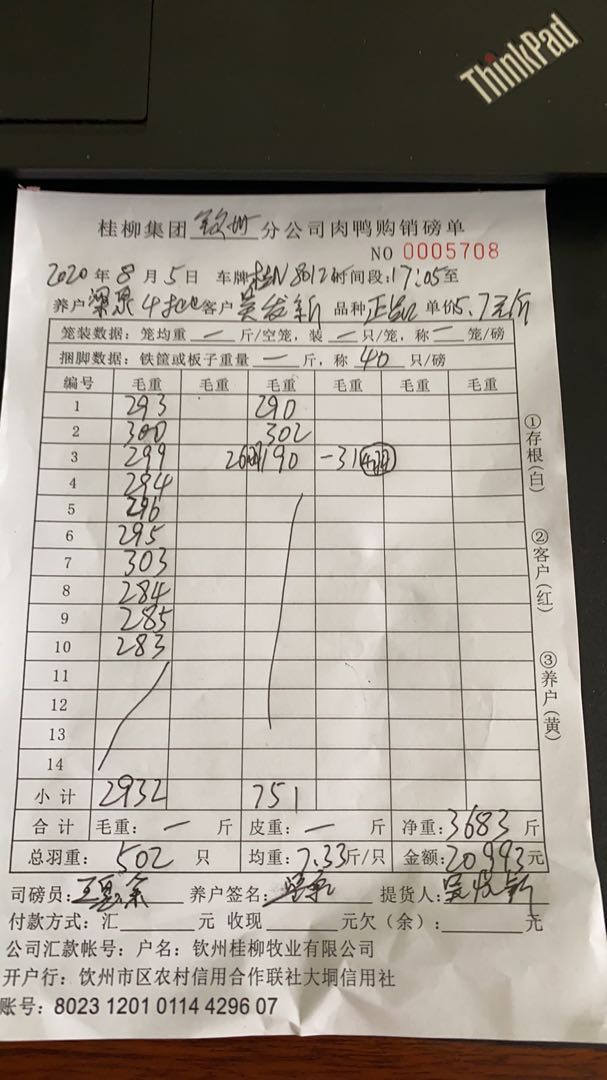 ThinkPad
桂柳集团钦州分公司肉鸭购销磅单
NO 0005708
2020年8月5日 车牌桂N 8012 时间段:17:05至
养户梁 4 客户吴发新 品种正 单价5.7元/斤
笼装数据：笼均重 一 斤/空笼，装 一 只/笼，称 一 笼/磅
捆脚数据：铁筐或板子重量 一 斤，称 40 只/磅
编号 毛重 毛重 毛重 毛重 毛重 毛重
1 293 290
2 300 302
3 299 190 -31
4 294
5 296
6 295
7 303
8 284
9 285
10 283
11
12
13
14
小计 2932 751
合计 毛重：一 斤 皮重：一 斤 净重：3683 斤
总羽重：502 只 均重：7.33斤/只 金额：20993元
司磅员： 养户签名： 提货人：吴发新
付款方式：汇 元 收现 元欠（余）： 元
公司汇款帐号：户名：钦州桂柳牧业有限公司
开户行：饮州市区农村信用合作联社大垌信用社
账号：8023 1201 0114 4296 07
①存根(白)
②客户(红)
③养户(黄)